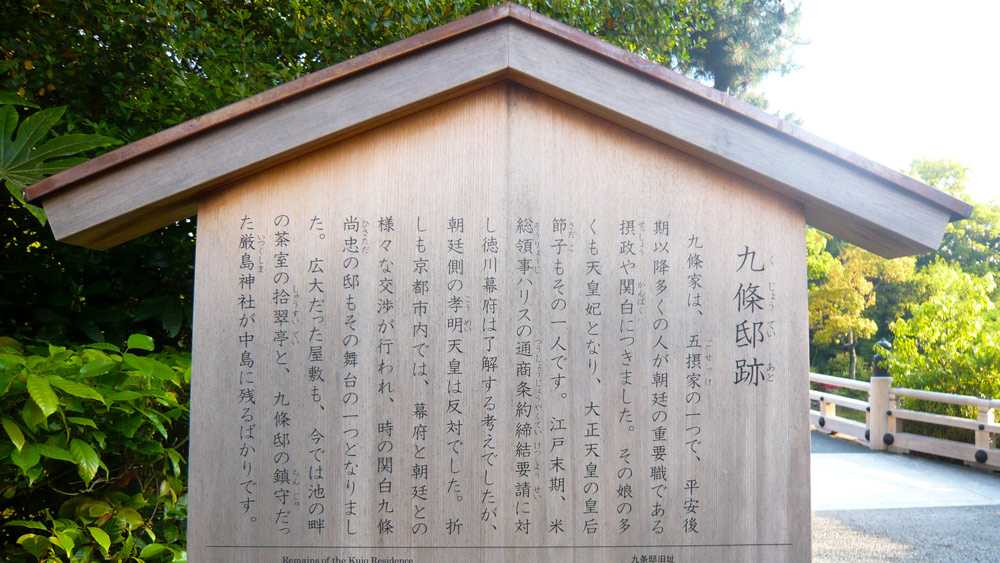 九條邸跡
九條家は、五摂家の一つで、平安後
期以降多くの人が朝廷の重要職である
摂政や関白につきました。その娘の多
くも天皇妃となり、大正天皇の皇后
節子もその一人です。江戸末期、米
総領事ハリスの通商条約締結要請に対
し徳川幕府は了解する考えでしたが、
朝廷側の孝明天皇は反対でした。折
しも京都市内では、幕府と朝廷との
様々な交渉が行われ、時の関白九條
尚忠の邸もその舞台の一つとなりまし
た。広大だった屋敷も、今では池の畔
の茶室の拾翠亭と、九條邸の鎮守だっ
た厳島神社が中島に残るばかりです。
Remains of the Kujo Residence
九条邸旧址